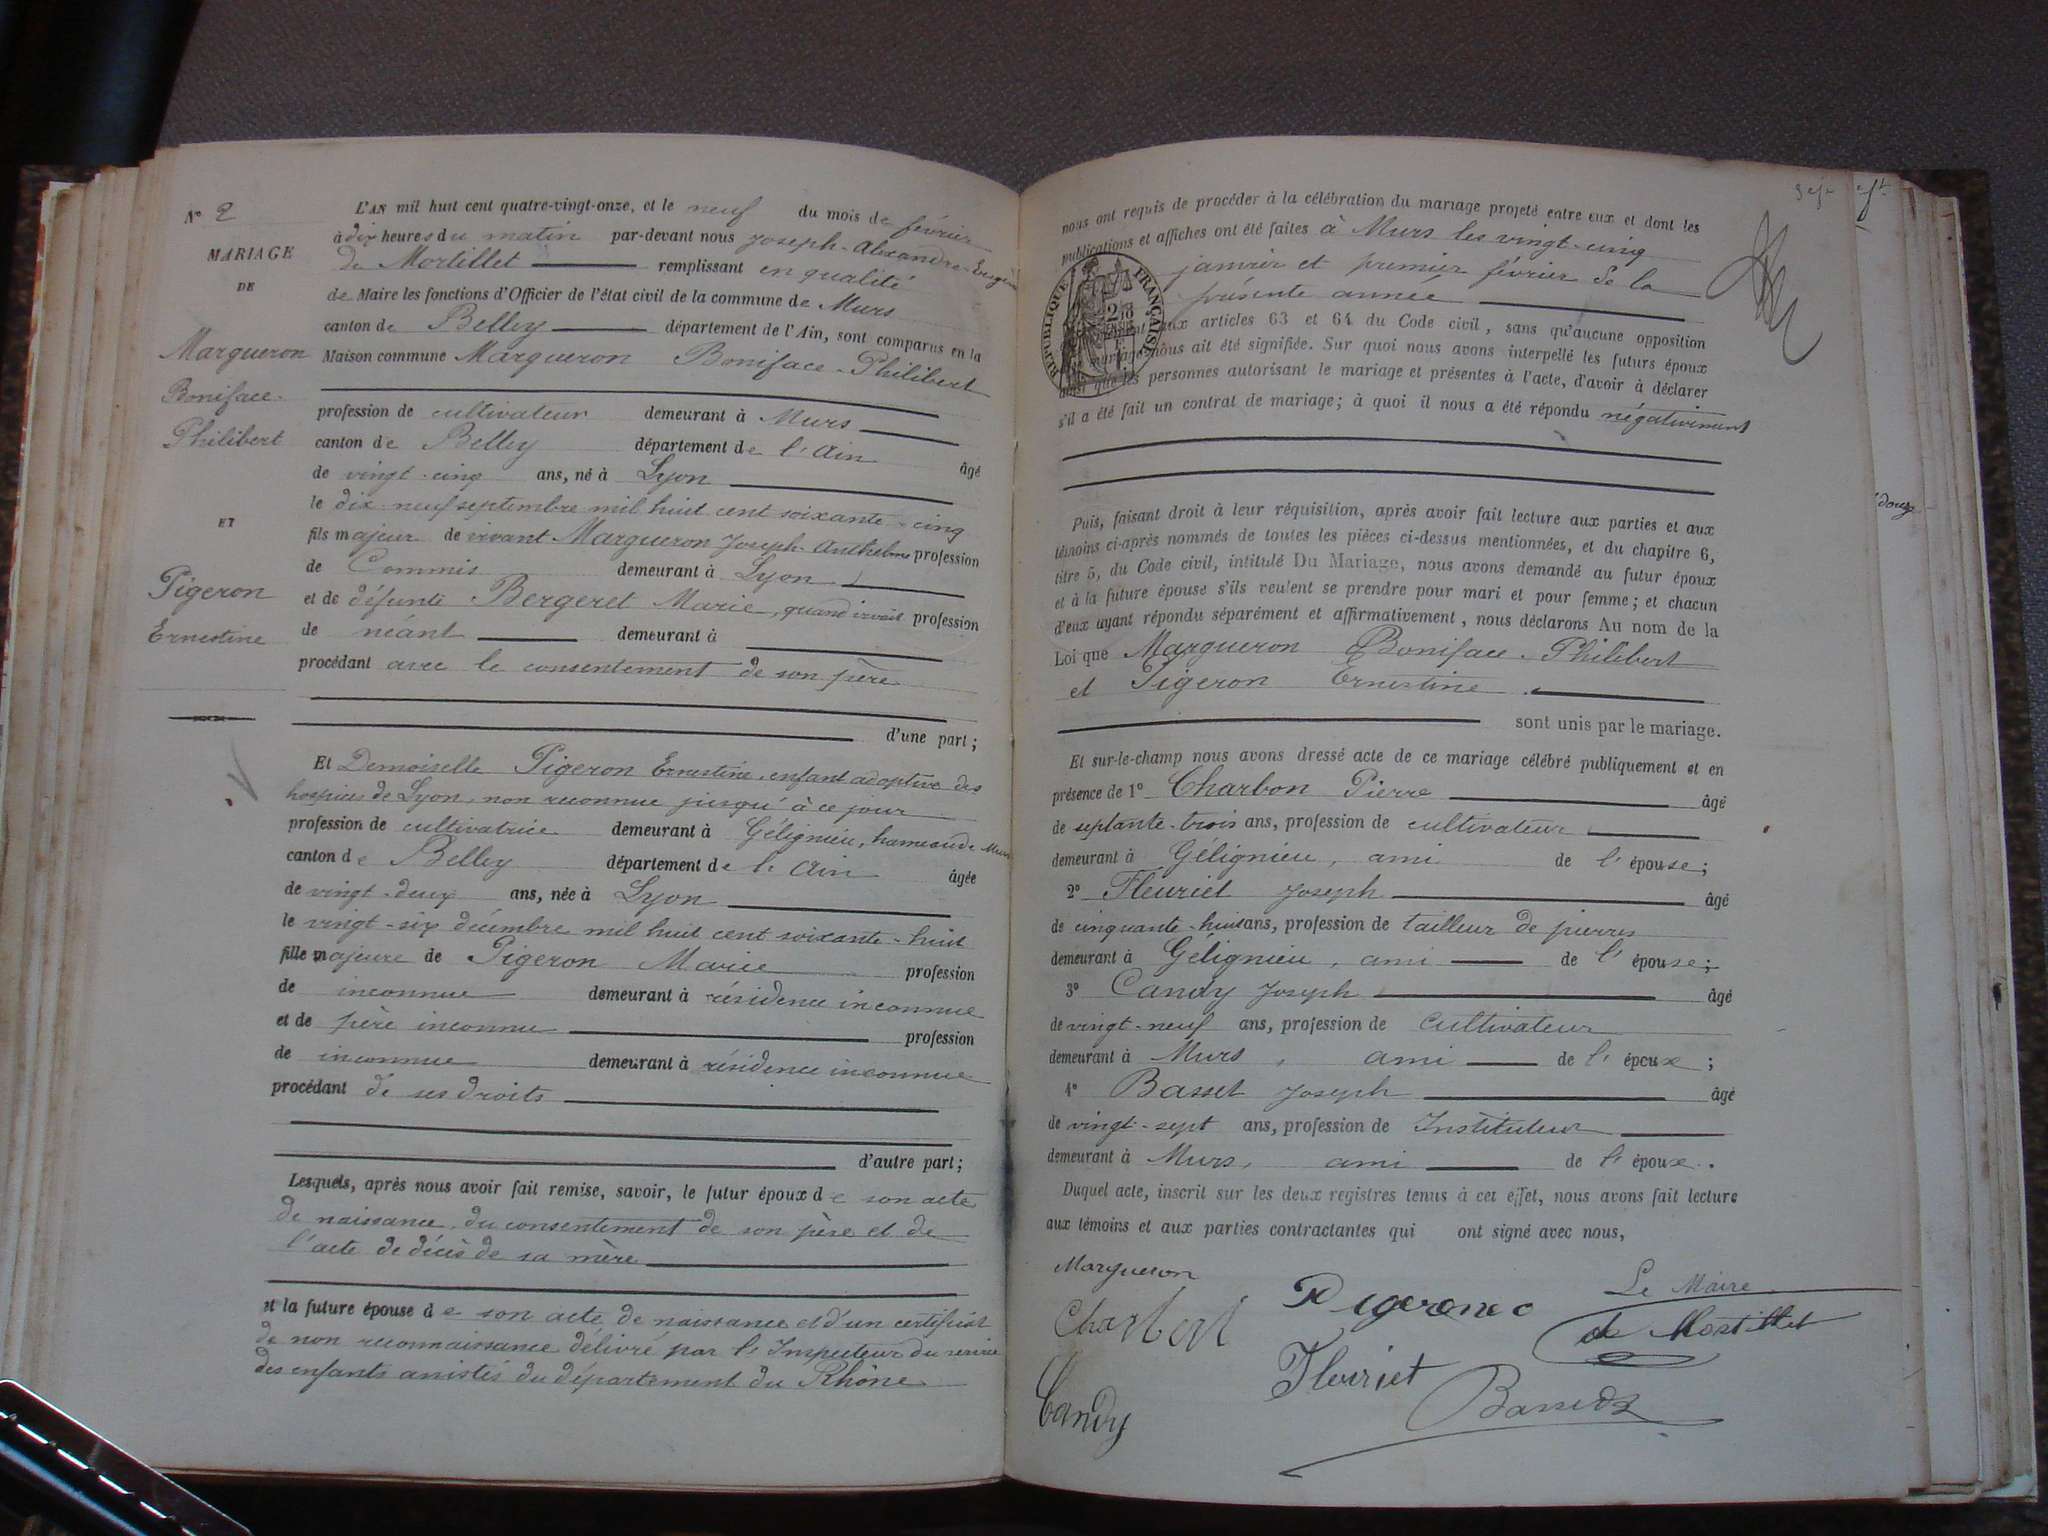 N° 2
MARIAGE
DE
Margueron
Boniface-
Philibert
ET
Pigeron
Ernestine
L'AN mil huit cent quatre-vingt-onze, et le neuf du mois de février
à dix heures du matin par-devant nous Joseph-Alexandre-Eugène
de Mortillet remplissant en qualité
de Maire les fonctions d'Officier de l'état civil de la commune de Murs
canton de Belley département de l'Ain, sont comparus en la
Maison commune Margueron Boniface-Philibert
profession de cultivateur demeurant à Murs
canton de Belley département de l'Ain âgé
de vingt-cinq ans, né à Lyon
le dix-neuf septembre mil huit cent soixante-cinq
fils majeur de vivant Margueron Joseph-Anthelme profession
de Commis demeurant à Lyon
et de défunte Bergeret Marie, quand vivait profession
de néant demeurant à
procédant avec le consentement de son père
d'une part;
Et Demoiselle Pigeron Ernestine, enfant adoptive des
hospices de Lyon, non reconnue jusqu'à ce jour
profession de cultivatrice demeurant à Gélignieu, hameau de Murs
canton de Belley département de l'Ain âgée
de vingt-deux ans, née à Lyon
le vingt-six décembre mil huit cent soixante-huit
fille majeure de Pigeron Marie profession
de inconnue demeurant à résidence inconnue
et de père inconnu profession
de inconnue demeurant à résidence inconnue
procédant de ses droits
d'autre part;
Lesquels, après nous avoir fait remise, savoir, le futur époux de son acte
de naissance, du consentement de son père et de
l'acte de décès de sa mère
et la future épouse de son acte de naissance et d'un certificat
de non reconnaissance délivré par l'Inspecteur du service
des enfants assistés du département du Rhône
nous ont requis de procéder à la célébration du mariage projeté entre eux et dont les
publications et affiches ont été faites à Murs les vingt-cinq
janvier et premier février de la
présente année
RÉPUBLIQUE FRANÇAISE
aux articles 63 et 64 du Code civil, sans qu'aucune opposition
mariage nous ait été signifiée. Sur quoi nous avons interpellé les futurs époux
ainsi que les personnes autorisant le mariage et présentes à l'acte, d'avoir à déclarer
s'il a été fait un contrat de mariage; à quoi il nous a été répondu négativement
Puis, faisant droit à leur réquisition, après avoir fait lecture aux parties et aux
témoins ci-après nommés de toutes les pièces ci-dessus mentionnées, et du chapitre 6,
titre 5, du Code civil, intitulé Du Mariage, nous avons demandé au futur époux
et à la future épouse s'ils veulent se prendre pour mari et pour femme; et chacun
d'eux ayant répondu séparément et affirmativement, nous déclarons Au nom de la
Loi que Margueron Boniface-Philibert
et Pigeron Ernestine
sont unis par le mariage.
Et sur-le-champ nous avons dressé acte de ce mariage célébré publiquement et en
présence de 1° Charbon Pierre âgé
de septante-trois ans, profession de cultivateur
demeurant à Gélignieu, ami de l'épouse;
2° Fleuriet Joseph âgé
de cinquante-huit ans, profession de tailleur de pierres
demeurant à Gélignieu, ami de l'épouse;
3° Candy Joseph âgé
de vingt-neuf ans, profession de cultivateur
demeurant à Murs, ami de l'époux;
4° Basset Joseph âgé
de vingt-sept ans, profession de Instituteur
demeurant à Murs, ami de l'époux.
Duquel acte, inscrit sur les deux registres tenus à cet effet, nous avons fait lecture
aux témoins et aux parties contractantes qui ont signé avec nous,
Margueron
Pigeron e
Le Maire
de Mortillet
Fleuriet
Candy
Basset